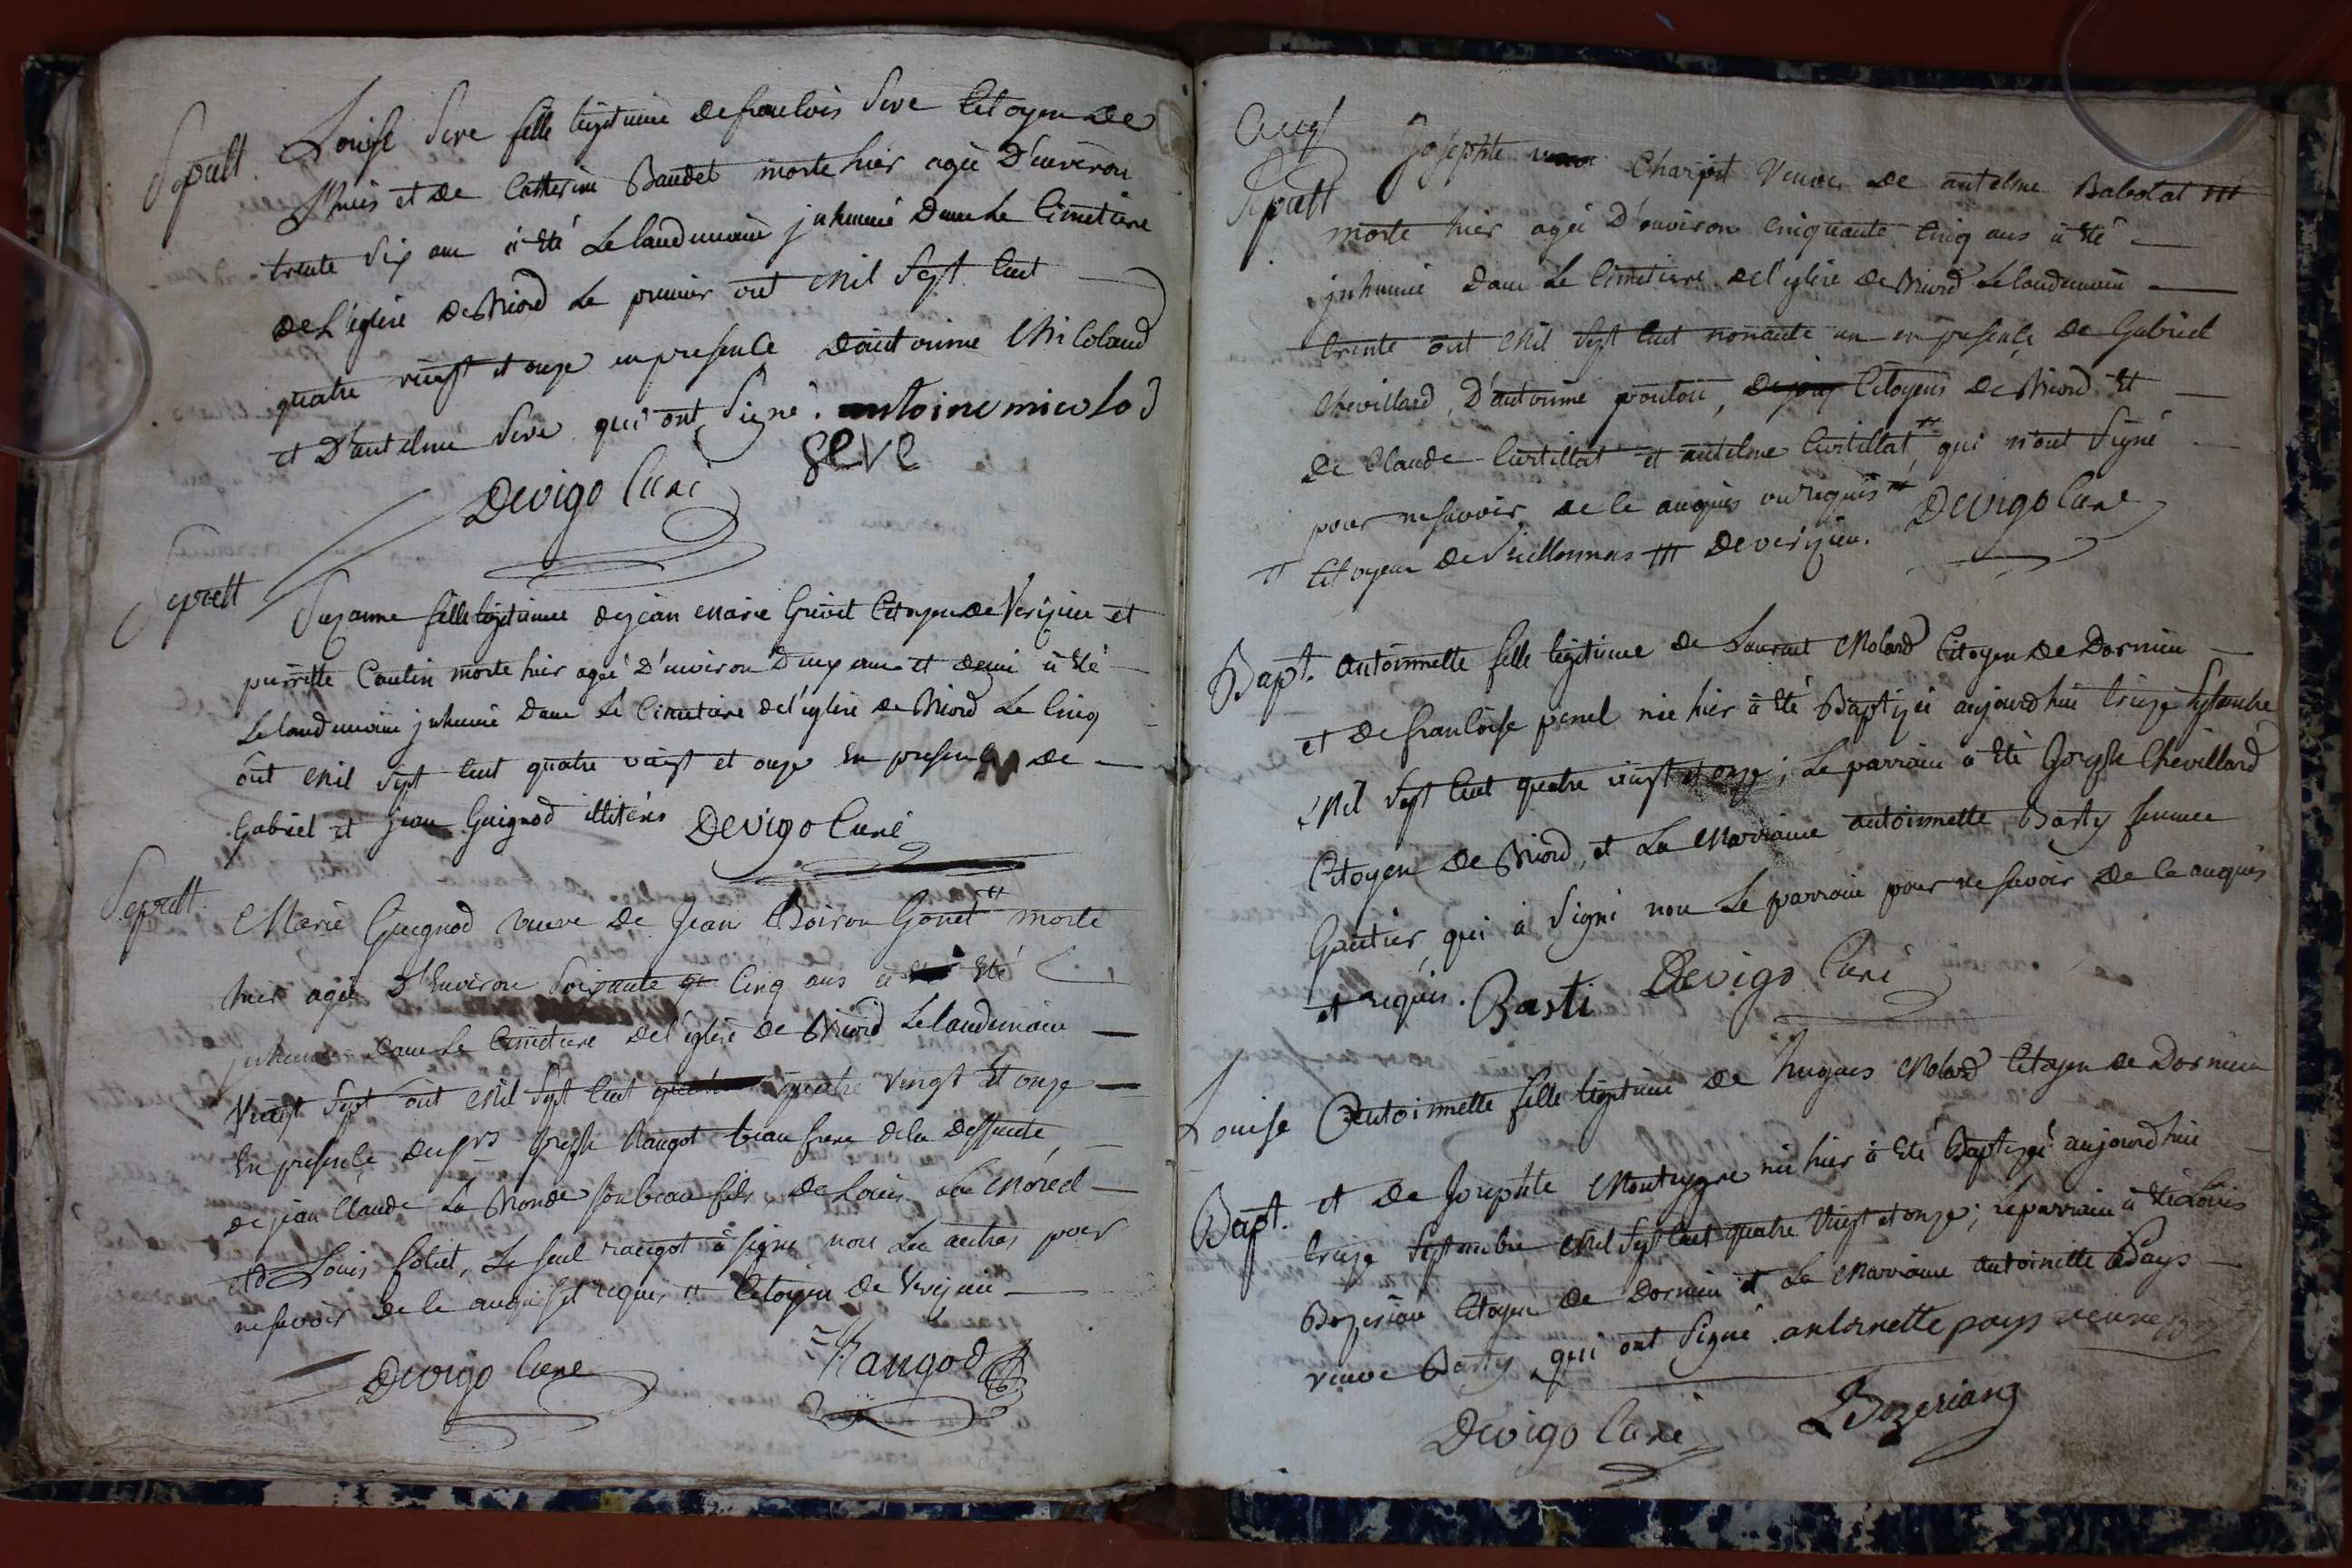 Sepult. Louise Seve fille legitime de francois Seve Citoyen de
et de Catterine Baudet morte hier agée D'environ
trente Six ans à Eté Lelandemain jnhumé Dans Le Cimetiere
de L'église de Briord Le premier out Mil Sept Cent
quatre vingt et onze en presence D'antoinne Micoland
et D'antelme Seve qui ont Signé. antoine micolod
Devigo Curé seve
Sepult
Suzanne fille legitime de jean Marie Grivet Citoyen de Verizieu et
pierrette Cautin morte hier agée D'environ Deux ans et demi à Eté
Lelandemain jnhumé Dans Le Cimetiere de l'église de Briord Le Cinq
out Mil Sept Cent quatre vingt et onze En presence de
Gabriel et jean Guignod illiterés Devigo Curé
Sepult.
Marie Guignod veuve de Jean Boiron Gonet # morte
hier agée D'Environ Soixante Cinq ans à Eté
jnhumée Dans Le Cimetiere de l'église de Briord Lelandemain
Vingt Sept out Mil Sept Cent quatre Vingt Et onze
En presence de Srs Joseph Raugot beau frere de la Deffunte
de jean Claude La Bronde son beau fils, de Louis La Morel
et de Louis Foliet, Le Seul raugot à signé non Les autres pour
ne Savoir de ce enquis et requis # Citoyen de Verizieu
Devigo Curé Raugod
Aug
Sepult
Josephte Charpit Veuve de antelme Babolat ///
morte hier agée D'environ Cinquante Cinq ans à Eté
jnhumée Dans Le Cimetiere de l'église de Briord Lelandemain
trente out Mil Sept Cent nonante un en presence de Gabriel
Chevillard, D'antoinne poulou, Citoyens de Briord Et
de Claude Curtillat et antelme Curtillat #, qui n'ont Signé
pour ne Savoir, de ce enquis ou requis # Devigo Curé
# Citoyens de Sicllonnas /// de verizieu.
Bapt. antoinnette fille legitime de Laurent Molard Citoyen de Dornieu
et de francoise penel née hier à Eté Baptizée aujourdhui treize Septembre
Mil Sept Cent quatre vingt et onze; Le parrain à Eté Joseph Chevillard
Citoyen de Briord, et La Marraine antoinnette Basty femme
Gautier, qui à Signé non Le parrain pour ne Savoir de ce enquis
et requis. Basti Devigo Curé
Louise Antoinnette fille legitime de hugues Molard Citoyen de Dornieu
Bapt. et de Josephte Montuyre née hier à Eté Baptizée aujourdhui
treize Septembre Mil Sept Cent quatre Vingt et onze; Le parrain à Eté Louis
Bozerian Citoyen de Dornieu et La Marraine antoinette Pays
veuve Basty, qui ont Signé. antoinette pays veuve
Devigo Curé LBozerian